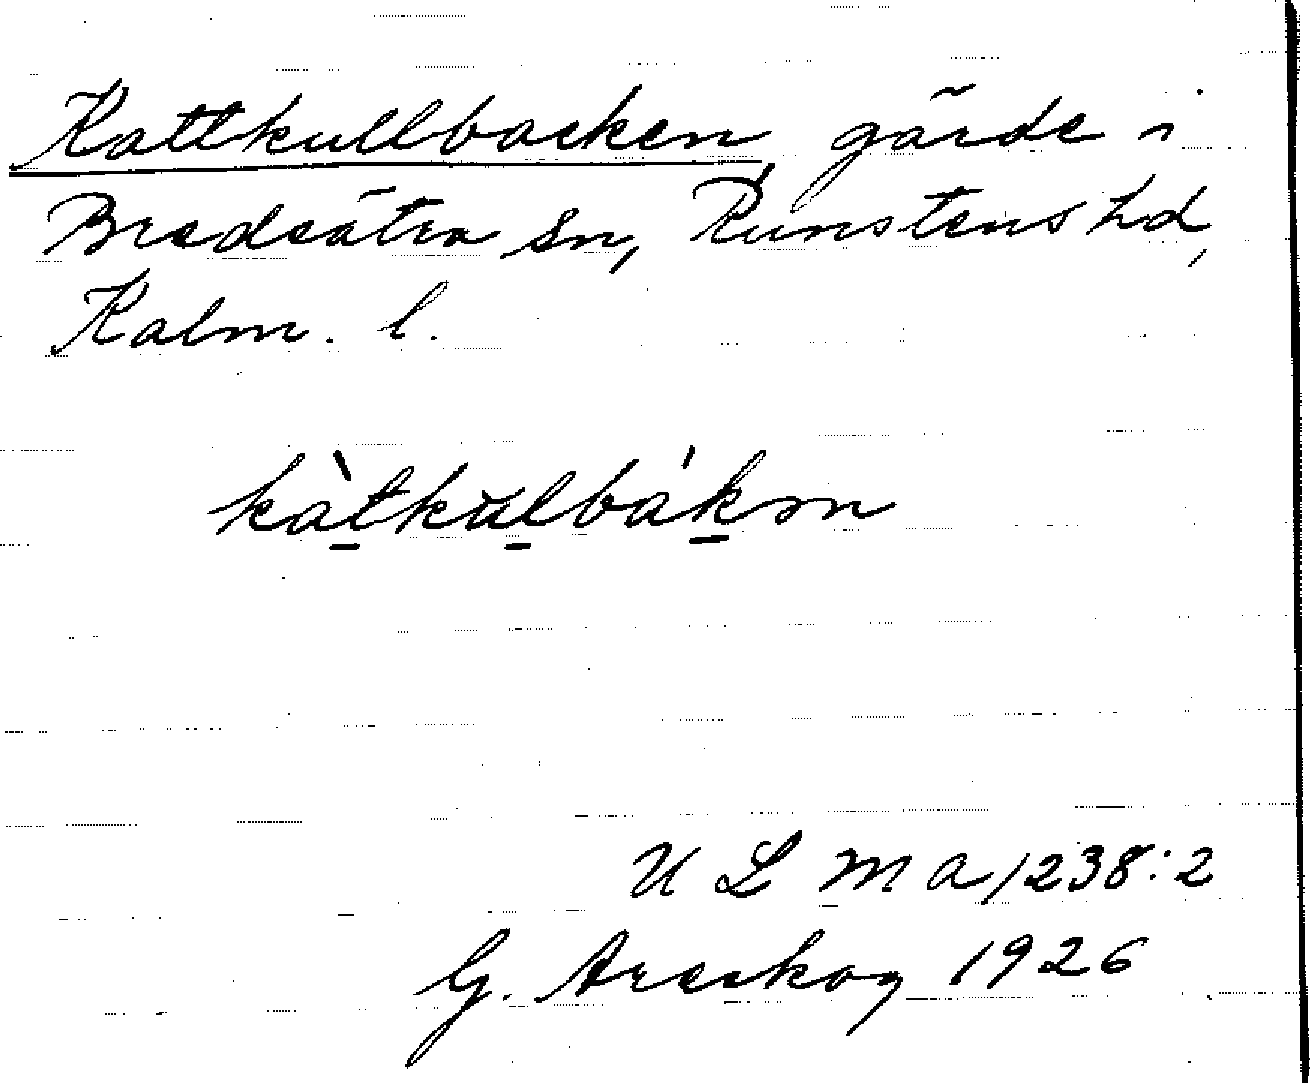 Kattkullbacken, gärde i
Bredsätra sn, Runstens hd,
Kalm. l.
kàt̠kul̠bák̠ən
U L M A 1238:2
G. Areskog 1926